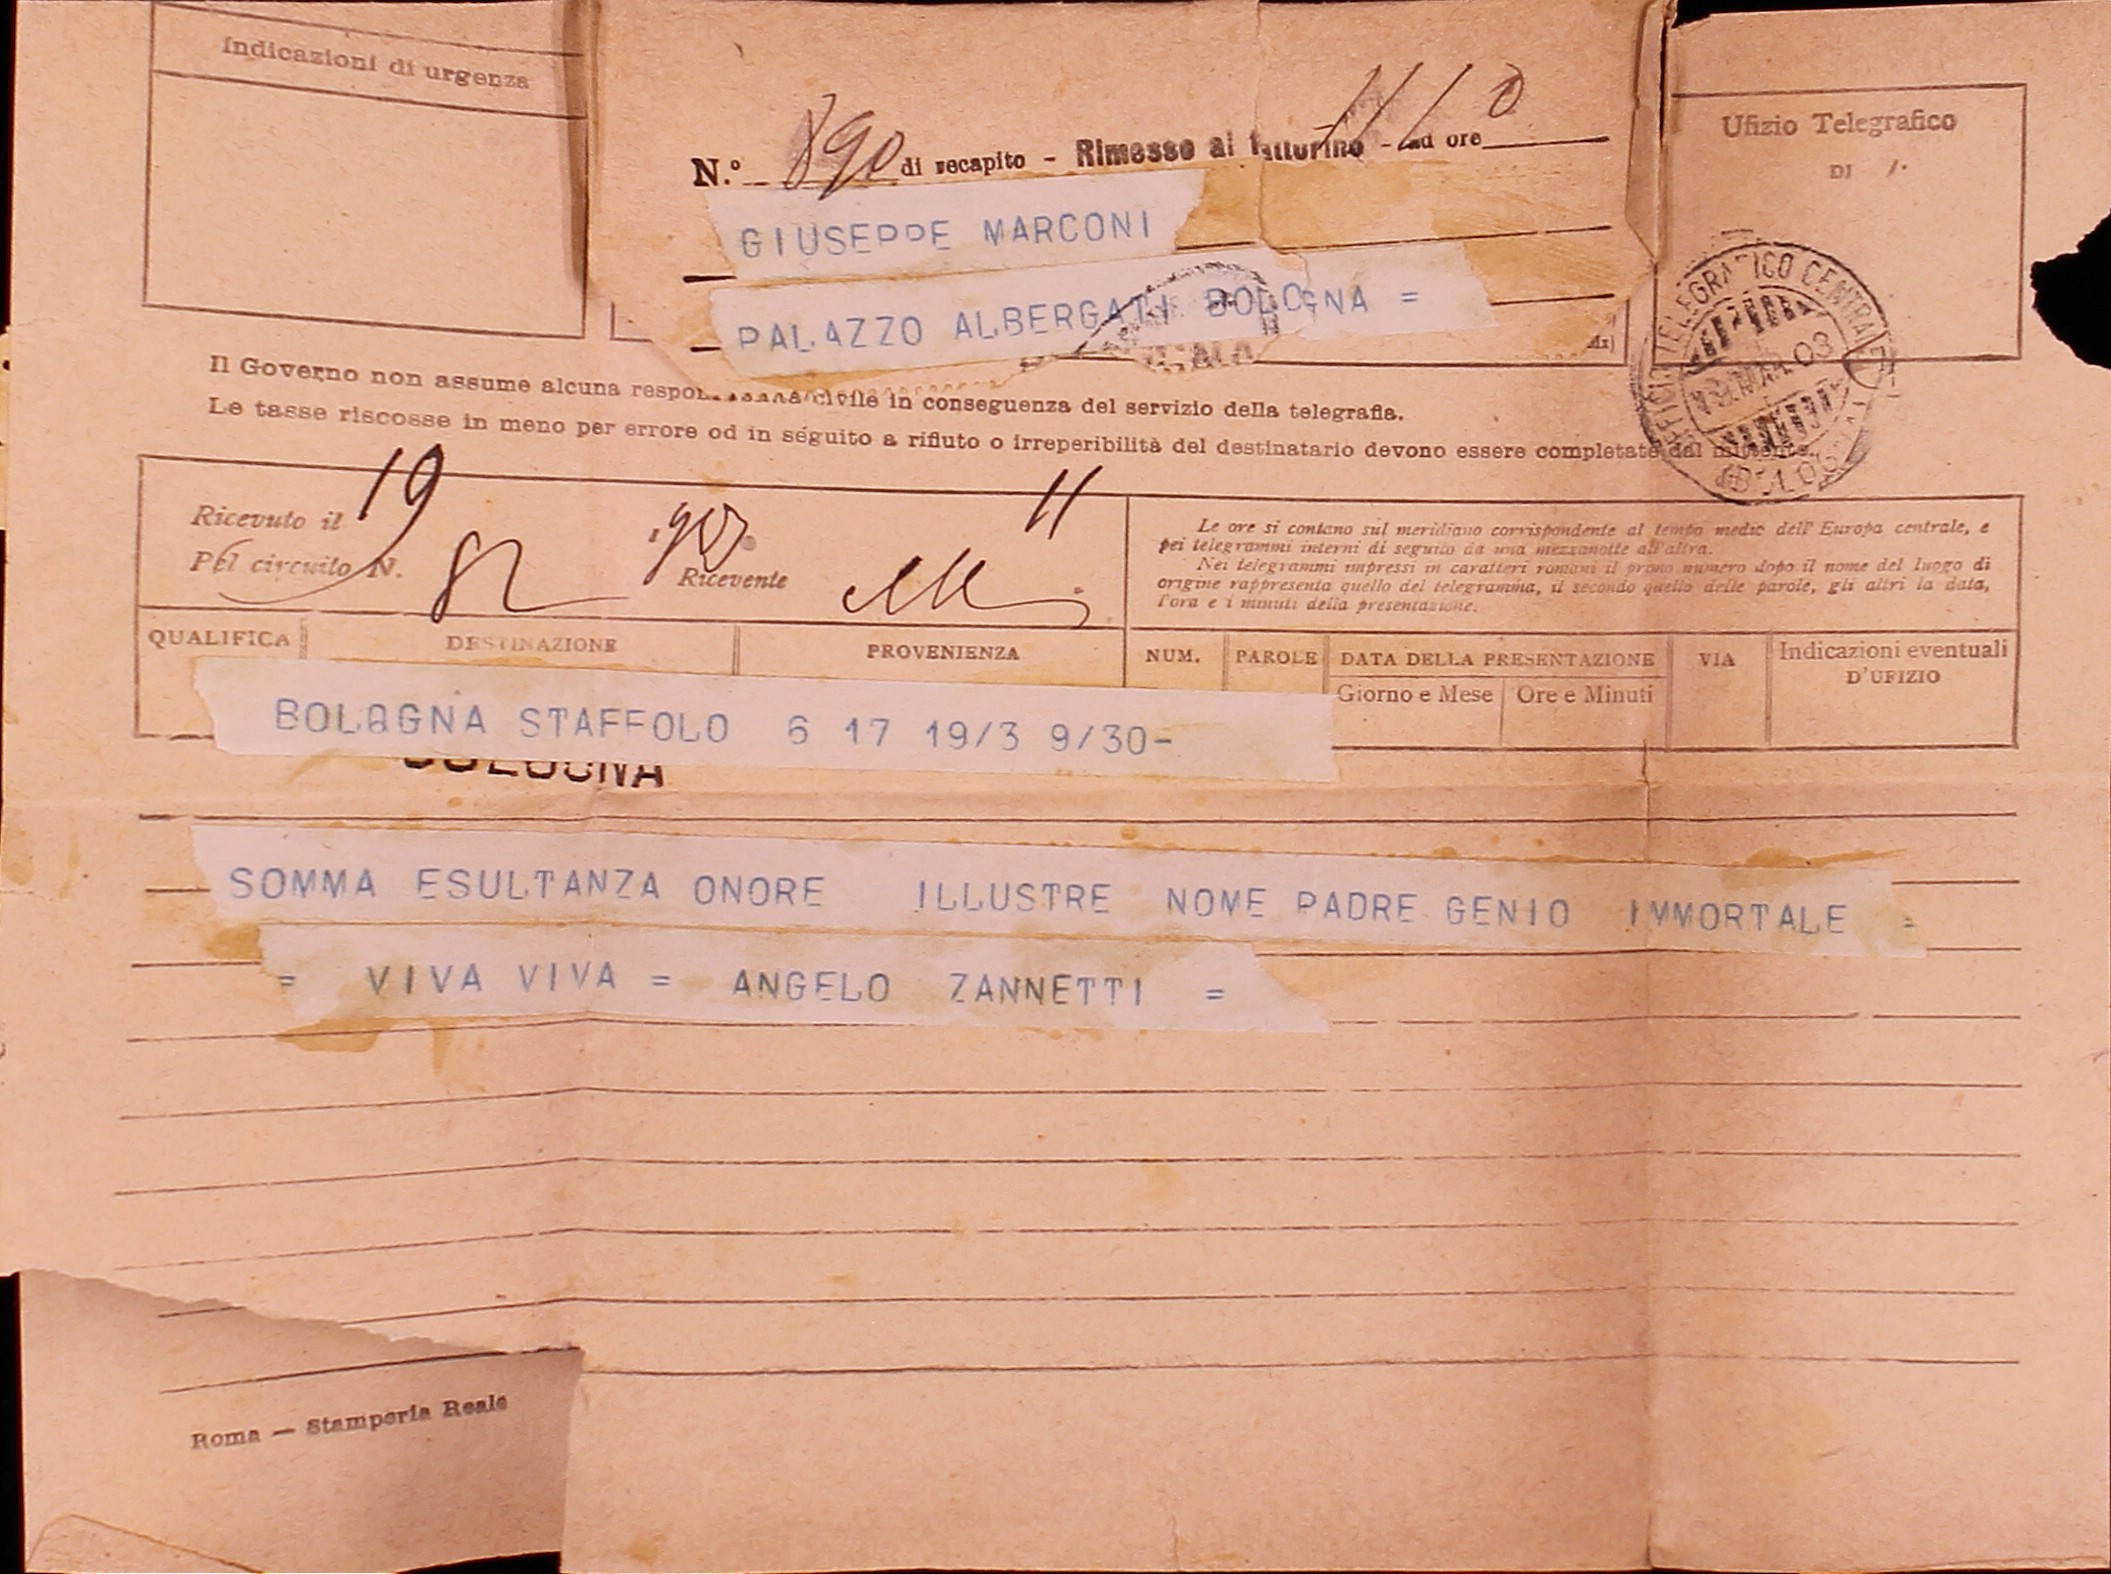 Indicazioni di urgenza
N.° 890 di recapito - Rimesso al fattorino - ad ore
Ufizio Telegrafico
DI
GIUSEPPE MARCONI
PALAZZO ALBERGATI BOLOGNA =
UFFICIO TELEGRAFICO CENTRALE
19 MAR 03
BOLOGNA
Il Governo non assume alcuna civile in conseguenza del servizio della telegrafia.
Le tasse riscosse in meno per errore od in séguito a rifiuto o irreperibilità del destinatario devono essere completate dal mittente.
Ricevuto il 19 1903 11
Pel circuito N. Ricevente
Le ore si contano sul meridiano corrispondente al tempo medio dell' Europa centrale, e
pei telegrammi interni di seguito da una mezzanotte all'altra.
Nei telegrammi impressi in caratteri romani il primo numero dopo il nome del luogo di
origine rappresenta quello del telegramma, il secondo quello delle parole, gli altri la data,
l'ora e i minuti della presentazione.
QUALIFICA DESTINAZIONE PROVENIENZA NUM. PAROLE DATA DELLA PRESENTAZIONE VIA Indicazioni eventuali
D'UFIZIO
Giorno e Mese Ore e Minuti
BOLOGNA STAFFOLO 6 17 19/3 9/30-
BOLOGNA
SOMMA ESULTANZA ONORE ILLUSTRE NOME PADRE GENIO IMMORTALE =
= VIVA VIVA = ANGELO ZANNETTI =
Roma — Stamperia Reale